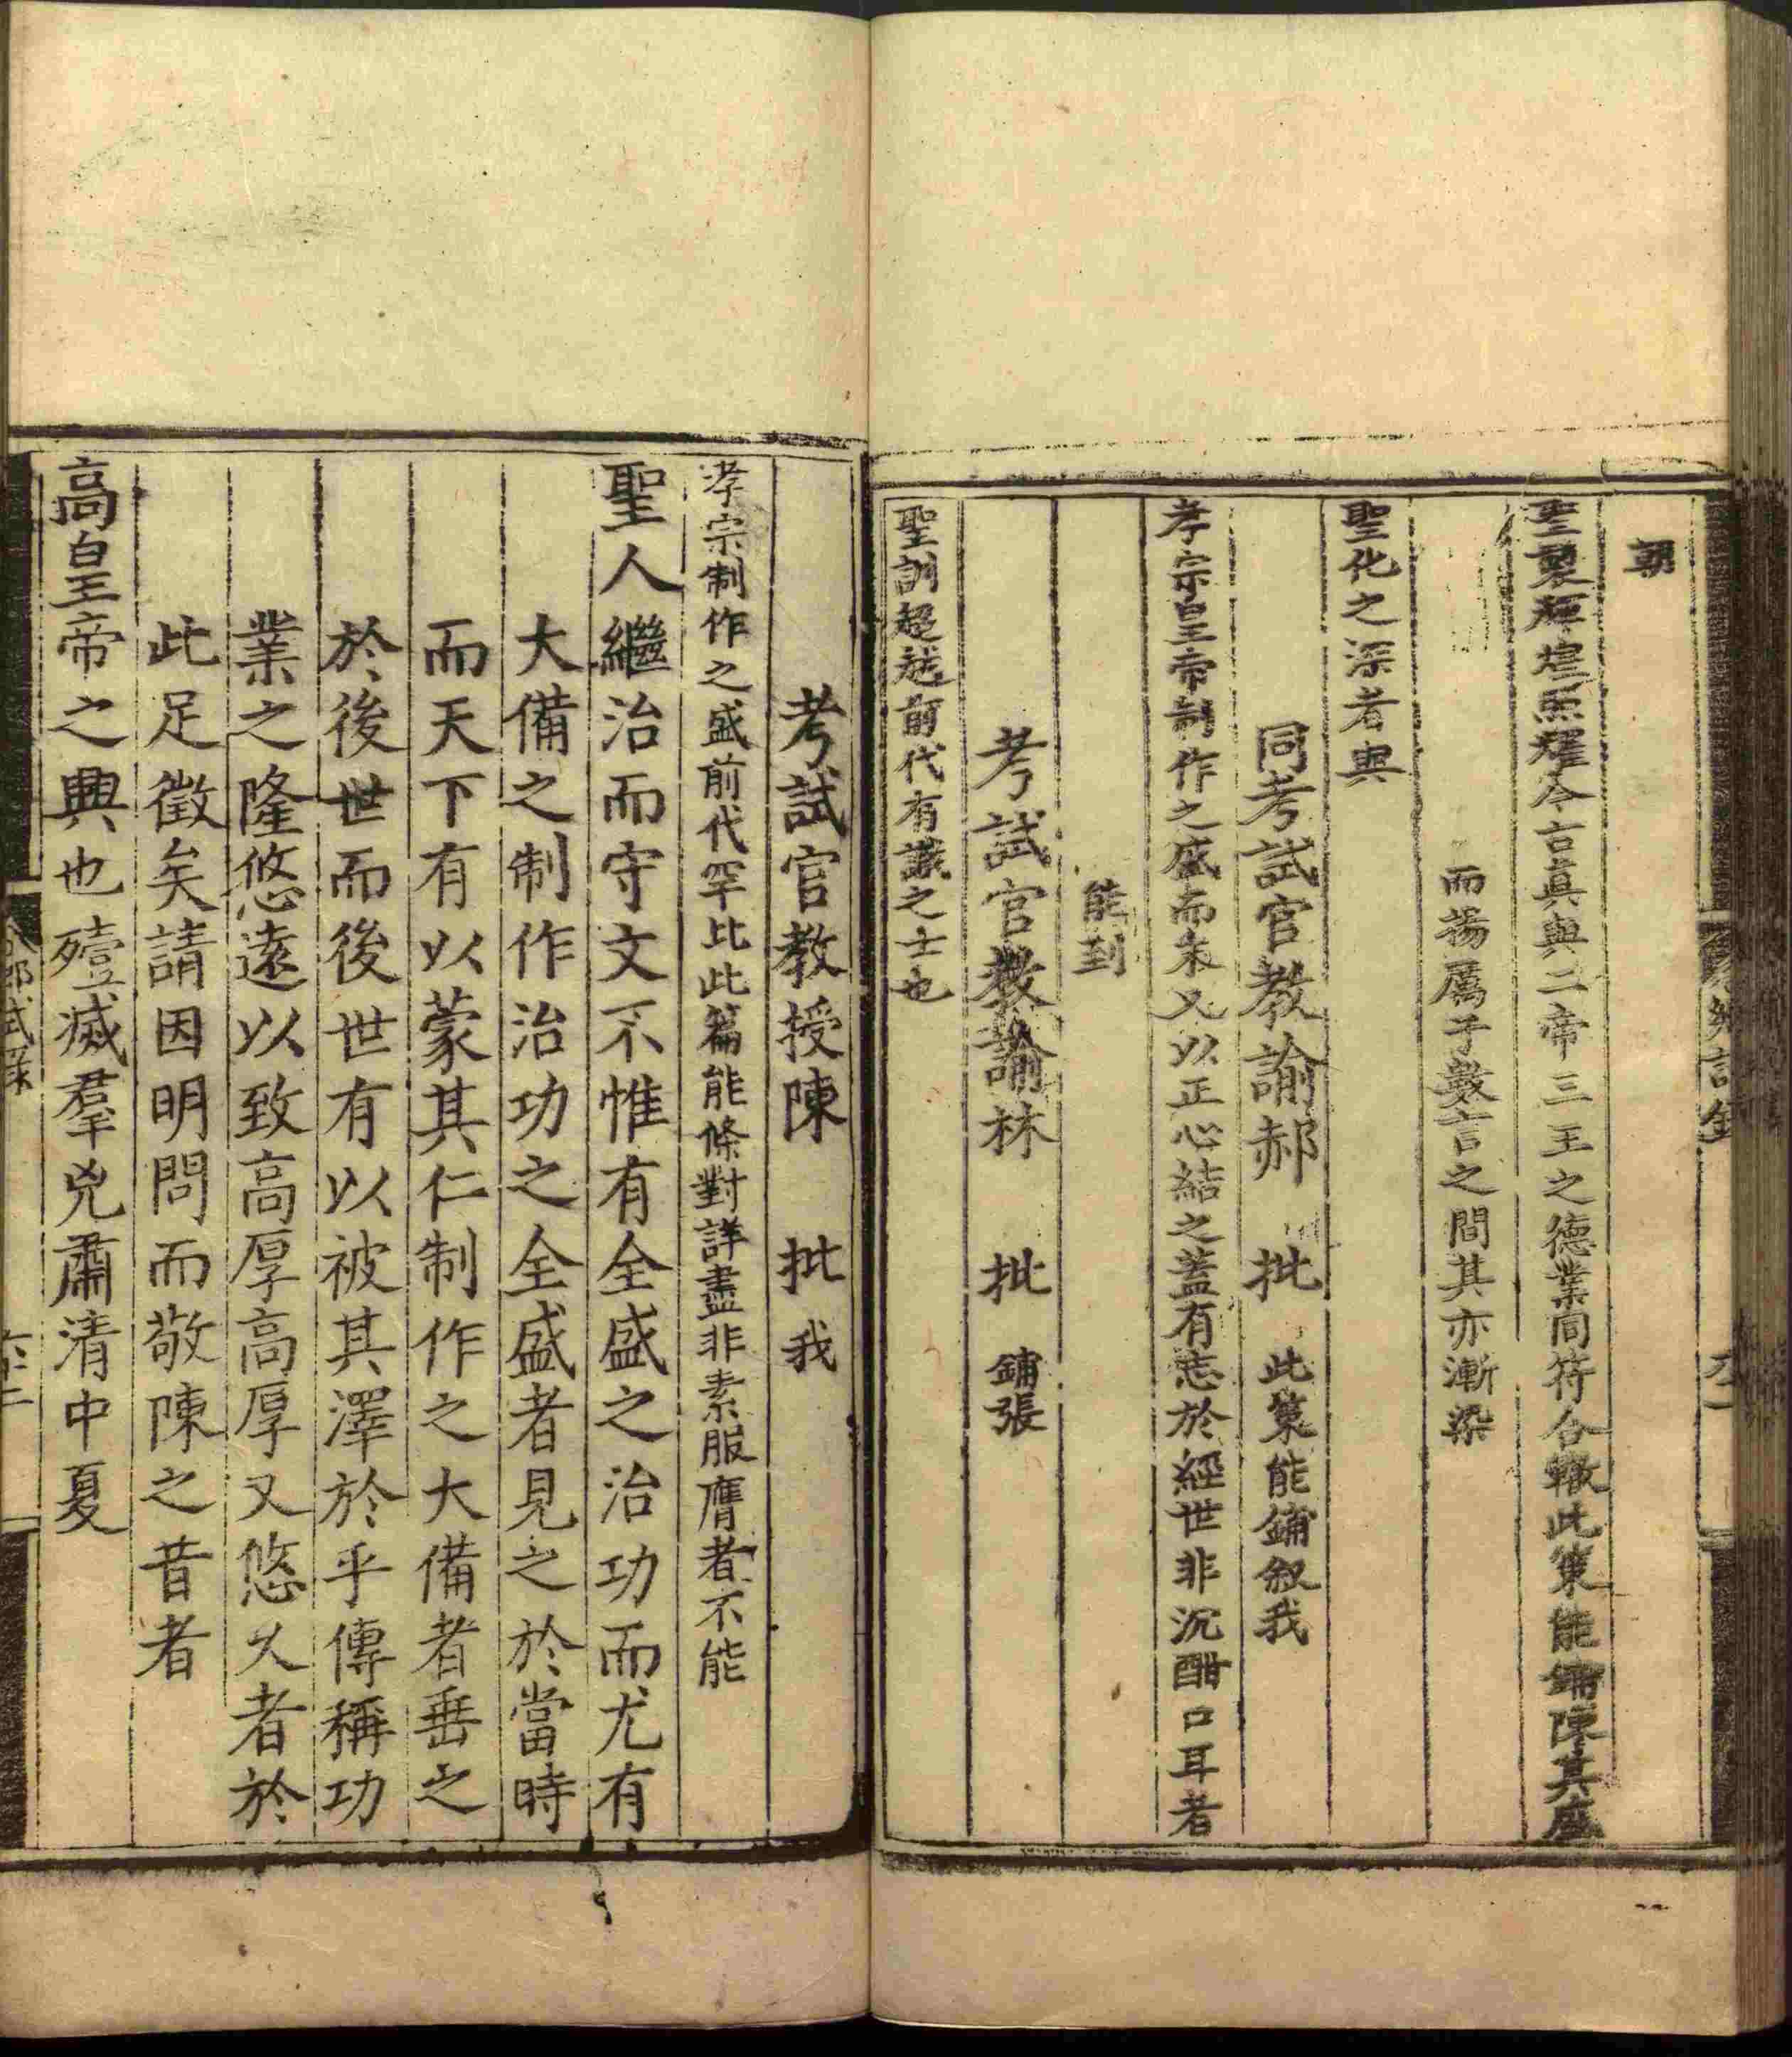 朝
聖製輝煌照耀今古真與二帝三王之德業同符合轍此策能鋪陳其盛
而揚厲于數言之間其亦漸染
聖化之深者與
同考試官教諭郝 批 此策能鋪敘我
孝宗皇帝制作之盛而末又以正心結之蓋有志於經世非沉酣口耳者
能到
考試官教諭林 批 鋪張
聖訓超越前代有識之士也
考試官教授陳 批 我
孝宗制作之盛前代罕比此篇能條對詳盡非素服膺者不能
聖人繼治而守文不惟有全盛之治功而尤有
大備之制作治功之全盛者見之於當時
而天下有以蒙其仁制作之大備者垂之
於後世而後世有以被其澤於乎傳稱功
業之隆悠遠以致高厚高厚又悠久者於
此足徵矣請因明問而敬陳之昔者
高皇帝之興也殪滅羣兇肅清中夏